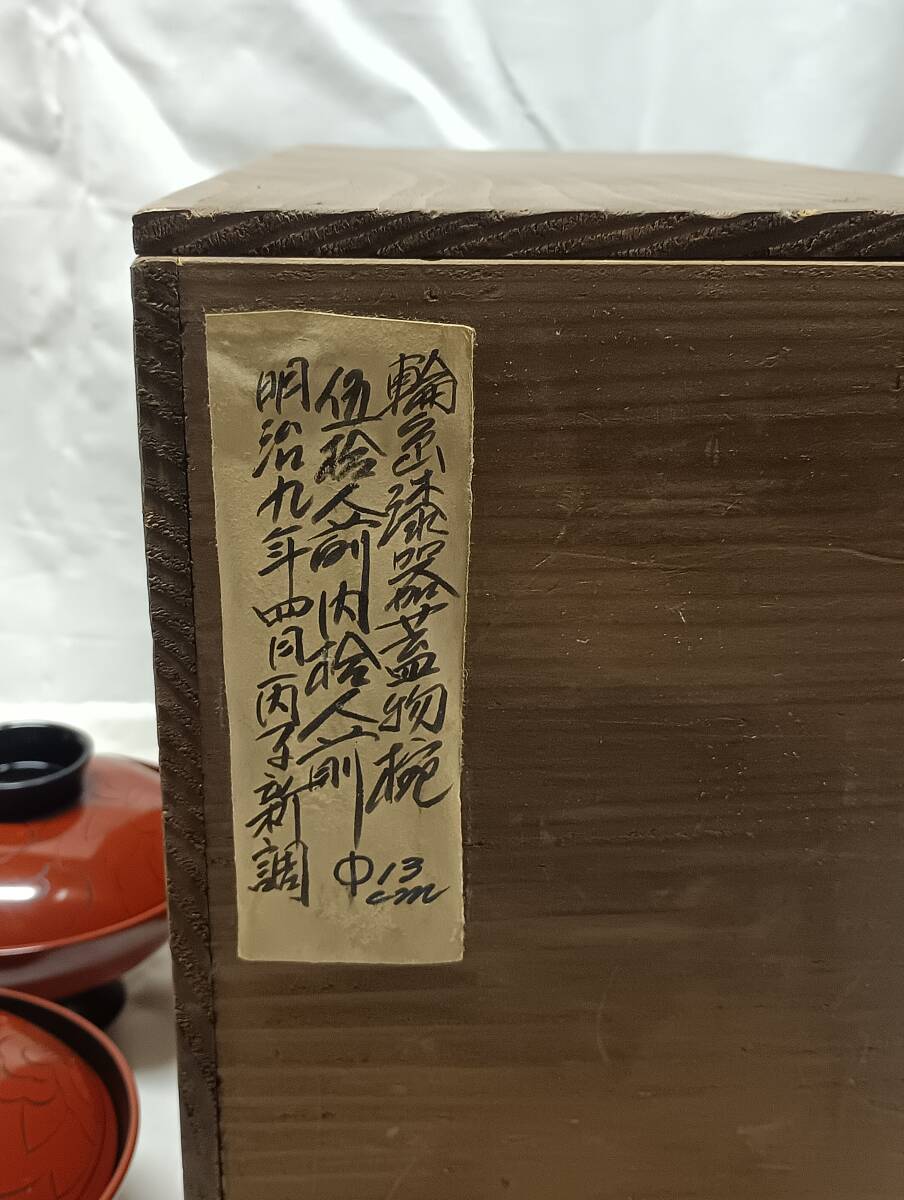 輪島漆器蓋物椀
伍拾人前内拾人前
明治九年四月丙子新調
Φ13cm